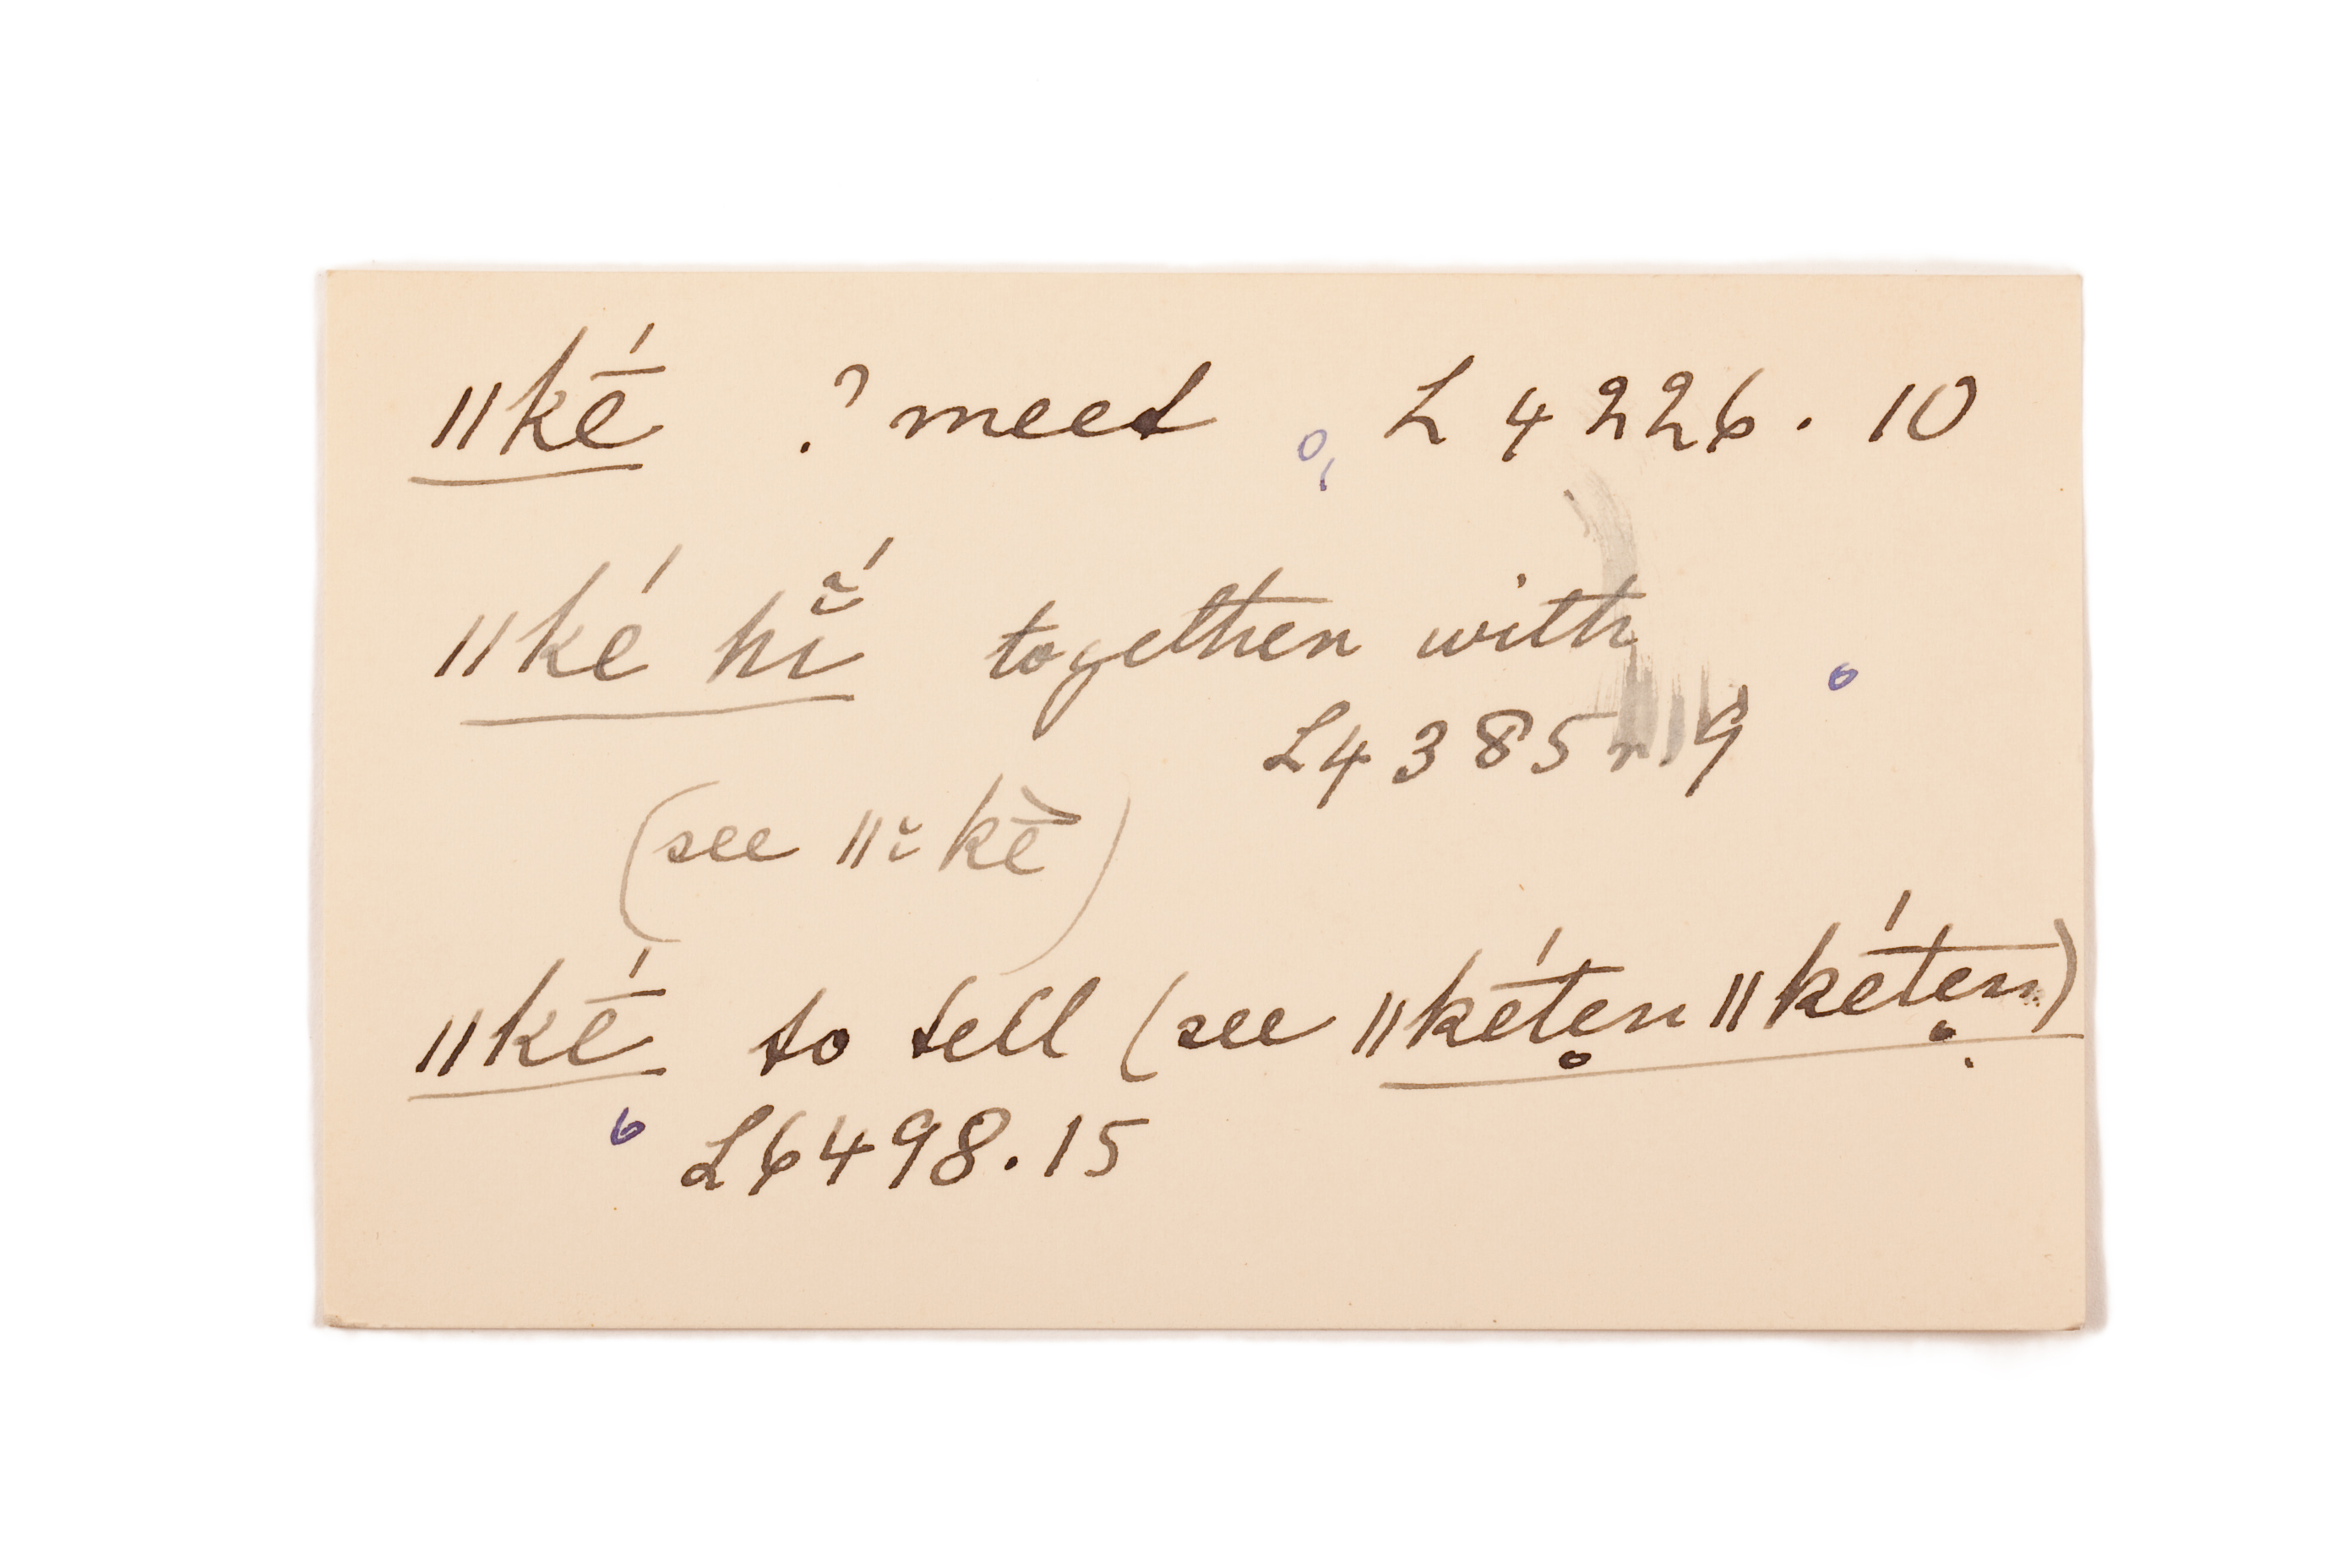 ǁkḗ ? meet L 4226. 10
ǁké hĩ̆́ together with
L4385r. 9
(see ǁĭkḕ)
ǁkḗ to tell (see ǁkéte̥n ǁkéte̥n)
L6498.15